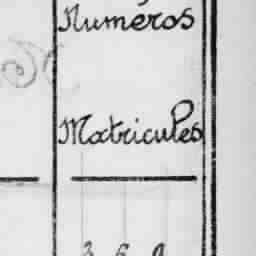 Numéros
Matricules